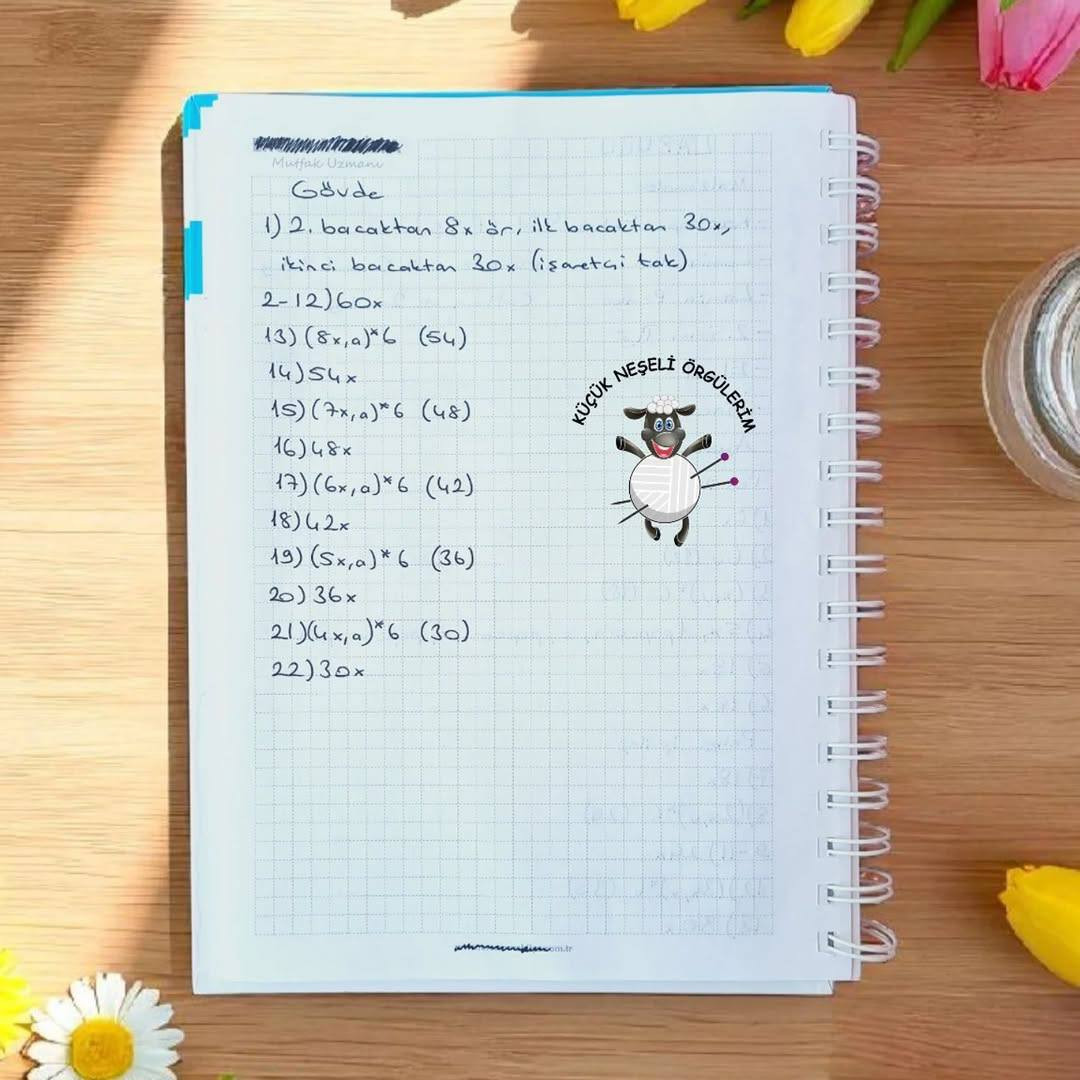 Mutfak Uzmanı
Gövde
1) 2. bacaktan 8x ör, ilk bacaktan 30x,
ikinci bacaktan 30x (işaretçi tak)
2-12) 60x
13) (8x,a)*6 (54)
14) 54x
15) (7x,a)*6 (48)
16) 48x
17) (6x,a)*6 (42)
18) 42x
19) (5x,a)*6 (36)
20) 36x
21) (4x,a)*6 (30)
22) 30x
KÜÇÜK NEŞELİ ÖRGÜLERİM
com.tr